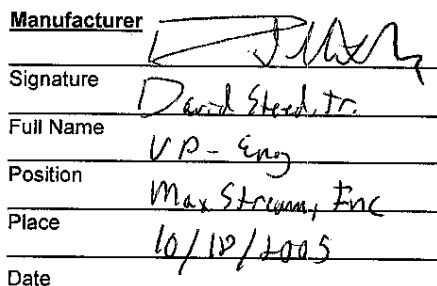 Manufacturer
Signature
David Steed, Jr.
Full Name
VP - Eng
Position
MaxStream, Inc
Place
10/18/2005
Date